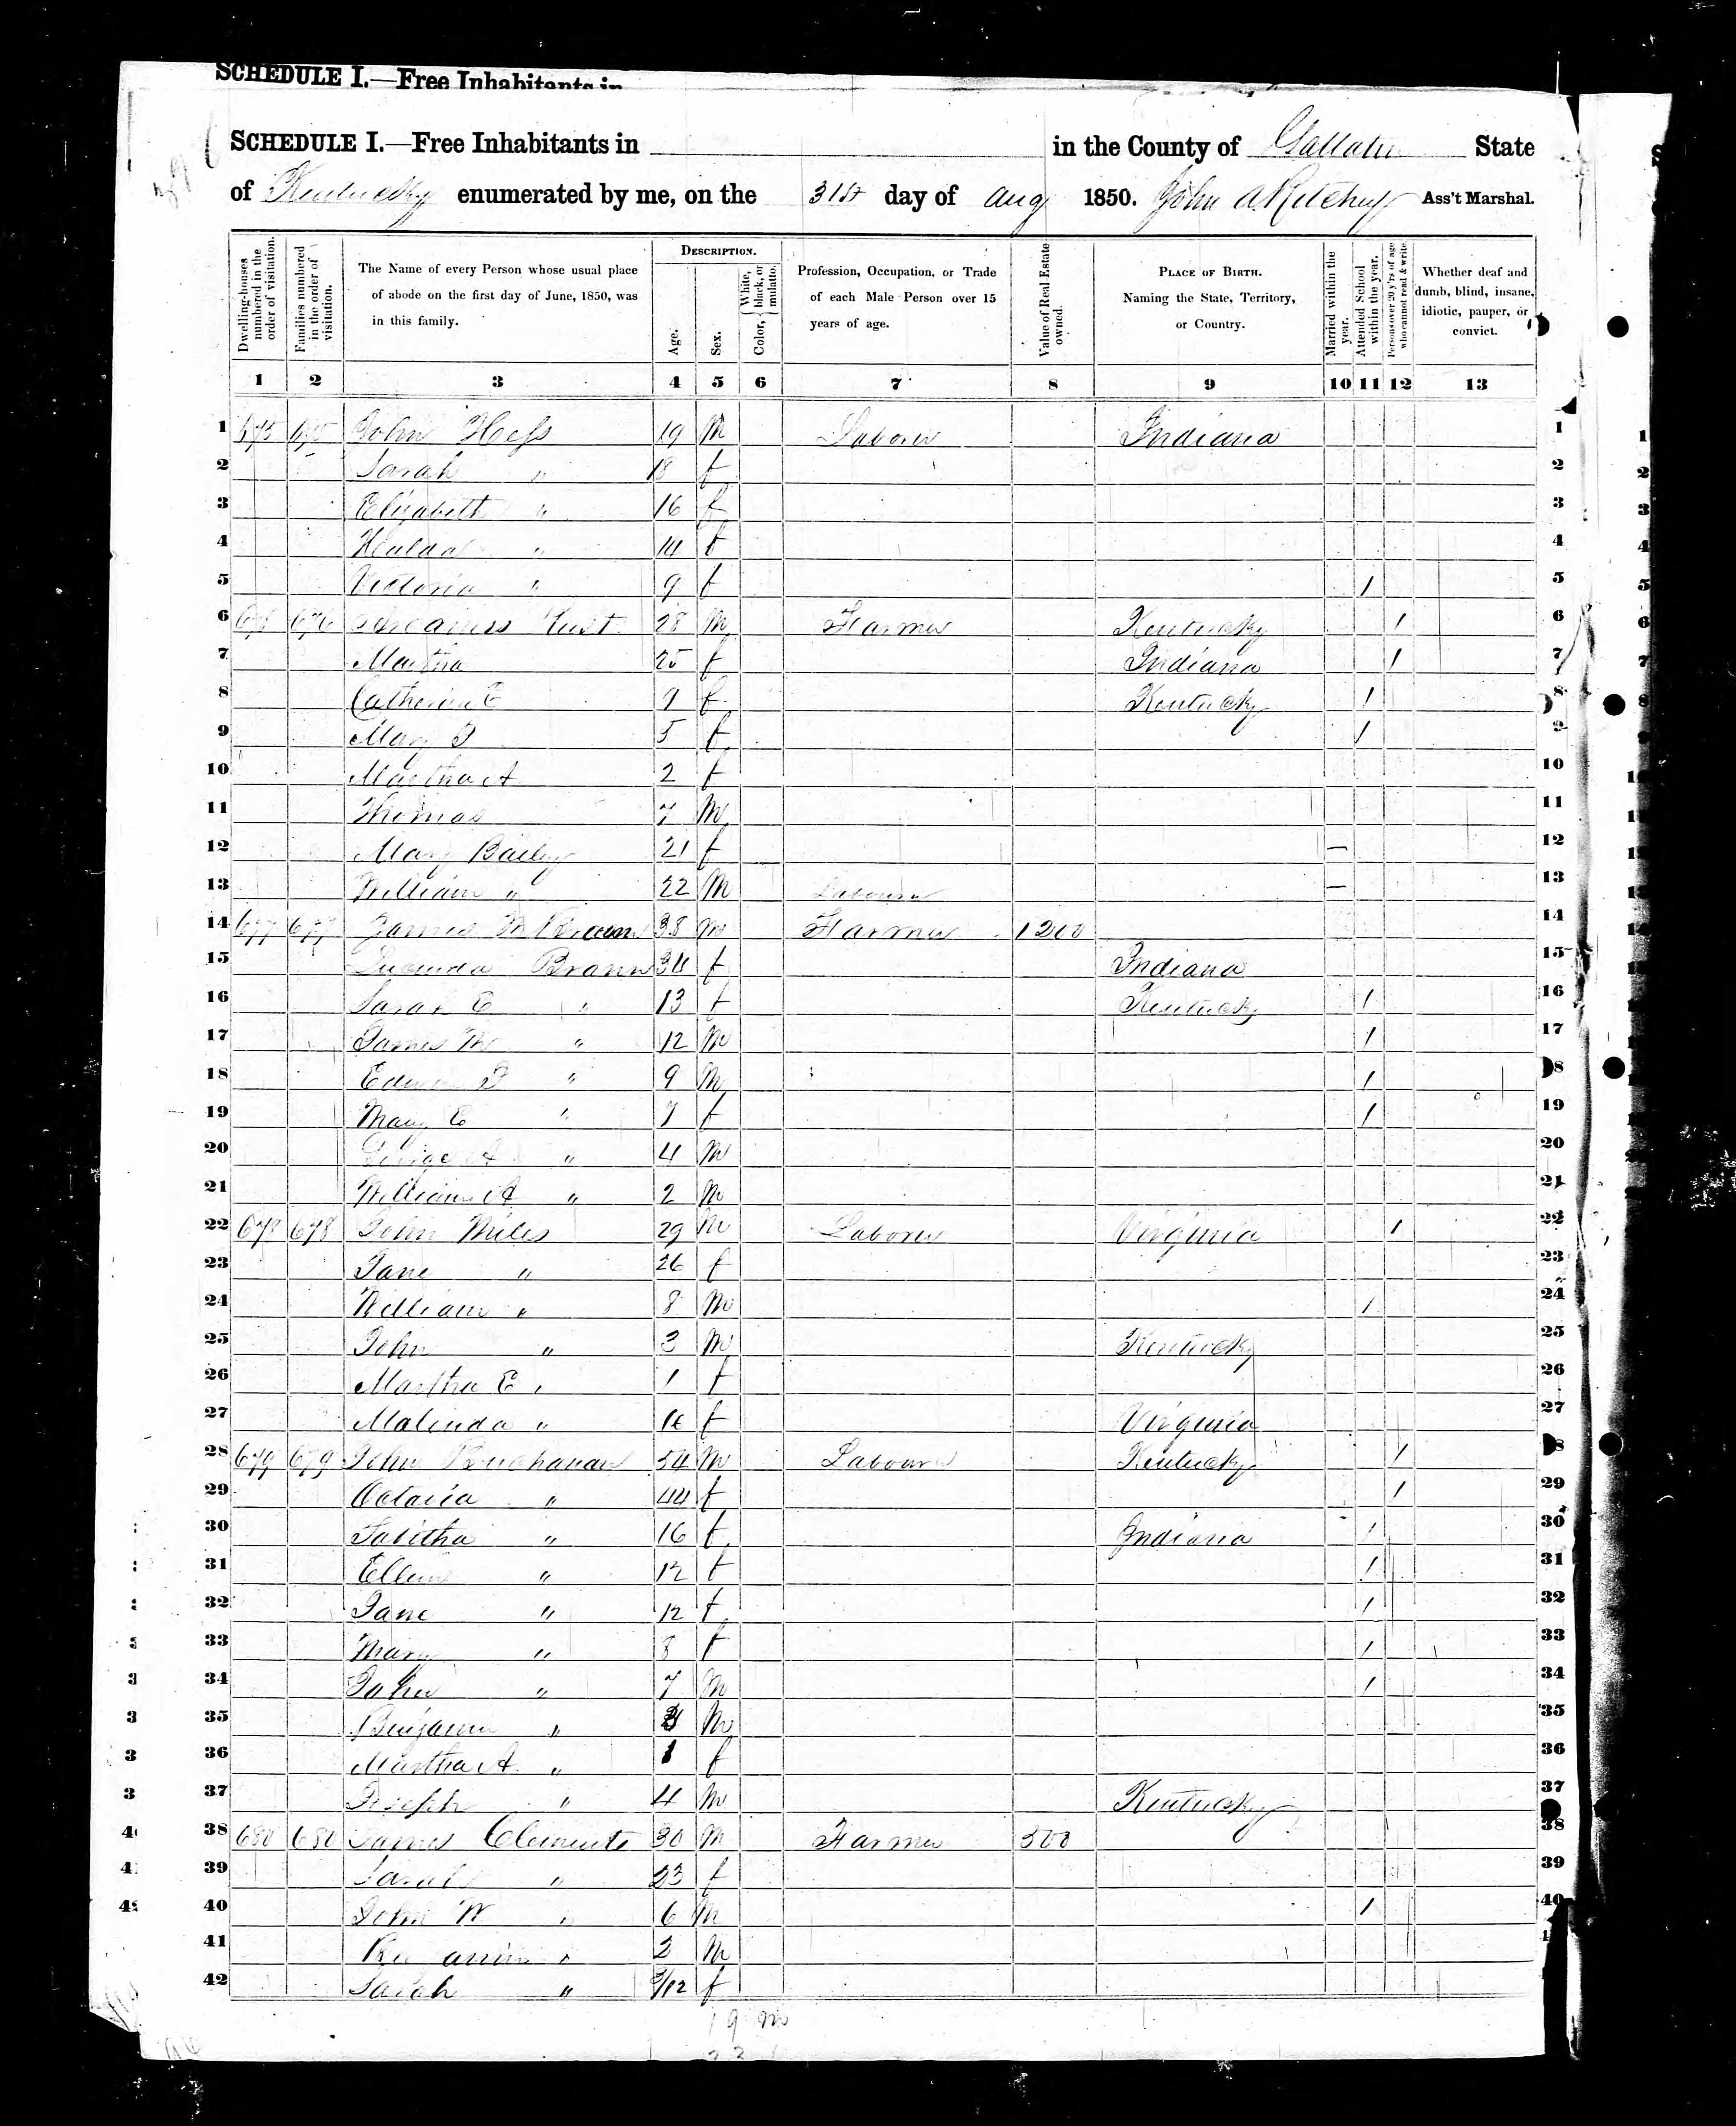 SCHEDULE I.—Free Inhabitants in
SCHEDULE I.—Free Inhabitants in in the County of Gallatin State
of Kentucky enumerated by me, on the 31st day of Aug 1850. John A Ritchey Ass't Marshal.
Dwelling-houses numbered in the order of visitation.
Families numbered in the order of visitation.
The Name of every Person whose usual place of abode on the first day of June, 1850, was in this family.
DESCRIPTION.
Age.
Sex.
Color, { White, black, or mulatto.
Profession, Occupation, or Trade of each Male Person over 15 years of age.
Value of Real Estate owned.
PLACE OF BIRTH. Naming the State, Territory, or Country.
Married within the year.
Attended School within the year.
Persons over 20 y'rs of age who cannot read & write.
Whether deaf and dumb, blind, insane, idiotic, pauper, or convict.
1 2 3 4 5 6 7 8 9 10 11 12 13
1 675 675 John Hess 19 M Laborer Indiana 1
2 Sarah " 18 f 2
3 Elizabeth " 16 f 3
4 Hulda " 14 f 4
5 Victoria " 9 f / 5
6 676 676 Rust 28 M Farmer Kentucky / 6
7 Martha 25 f Indiana / 7
8 Catherine E 9 f Kentucky / 8
9 Mary J 5 f / 9
10 Martha A 2 f 10
11 Thomas 7 M 11
12 Mary Bailey 21 f — 12
13 William " 22 M Labourer — 13
14 677 677 James M Brann 38 M Farmer 1200 14
15 Lucinda Brann 34 f Indiana 15
16 Sarah E " 13 f Kentucky / 16
17 James M " 12 M / 17
18 Edwin J " 9 M / 18
19 Mary E " 7 f / 19
20 George A " 4 M 20
21 William A " 2 M 21
22 678 678 John Miles 29 M Laborer Virginia / 22
23 Jane " 26 f 23
24 William " 8 M / 24
25 John " 3 M Kentucky 25
26 Martha E " 1 f 26
27 Malinda " 16 f Virginia 27
28 679 679 John Buchanan 54 M Labourer Kentucky / 28
29 Octavia " 44 f / 29
30 Tabitha " 16 f Indiana / 30
31 Ellen " 12 f / 31
32 Jane " 12 f / 32
33 Mary " 8 f / 33
34 John " 7 M / 34
35 Benjamin " M 35
36 Martha A " 1 f 36
37 Joseph " 4 M Kentucky 37
38 680 680 James Clements 30 M Farmer 500 38
39 Sarah " 23 f 39
40 John W " 6 M / 40
41 Benjamin " 2 M
42 Sarah " 3/12 f
19 m